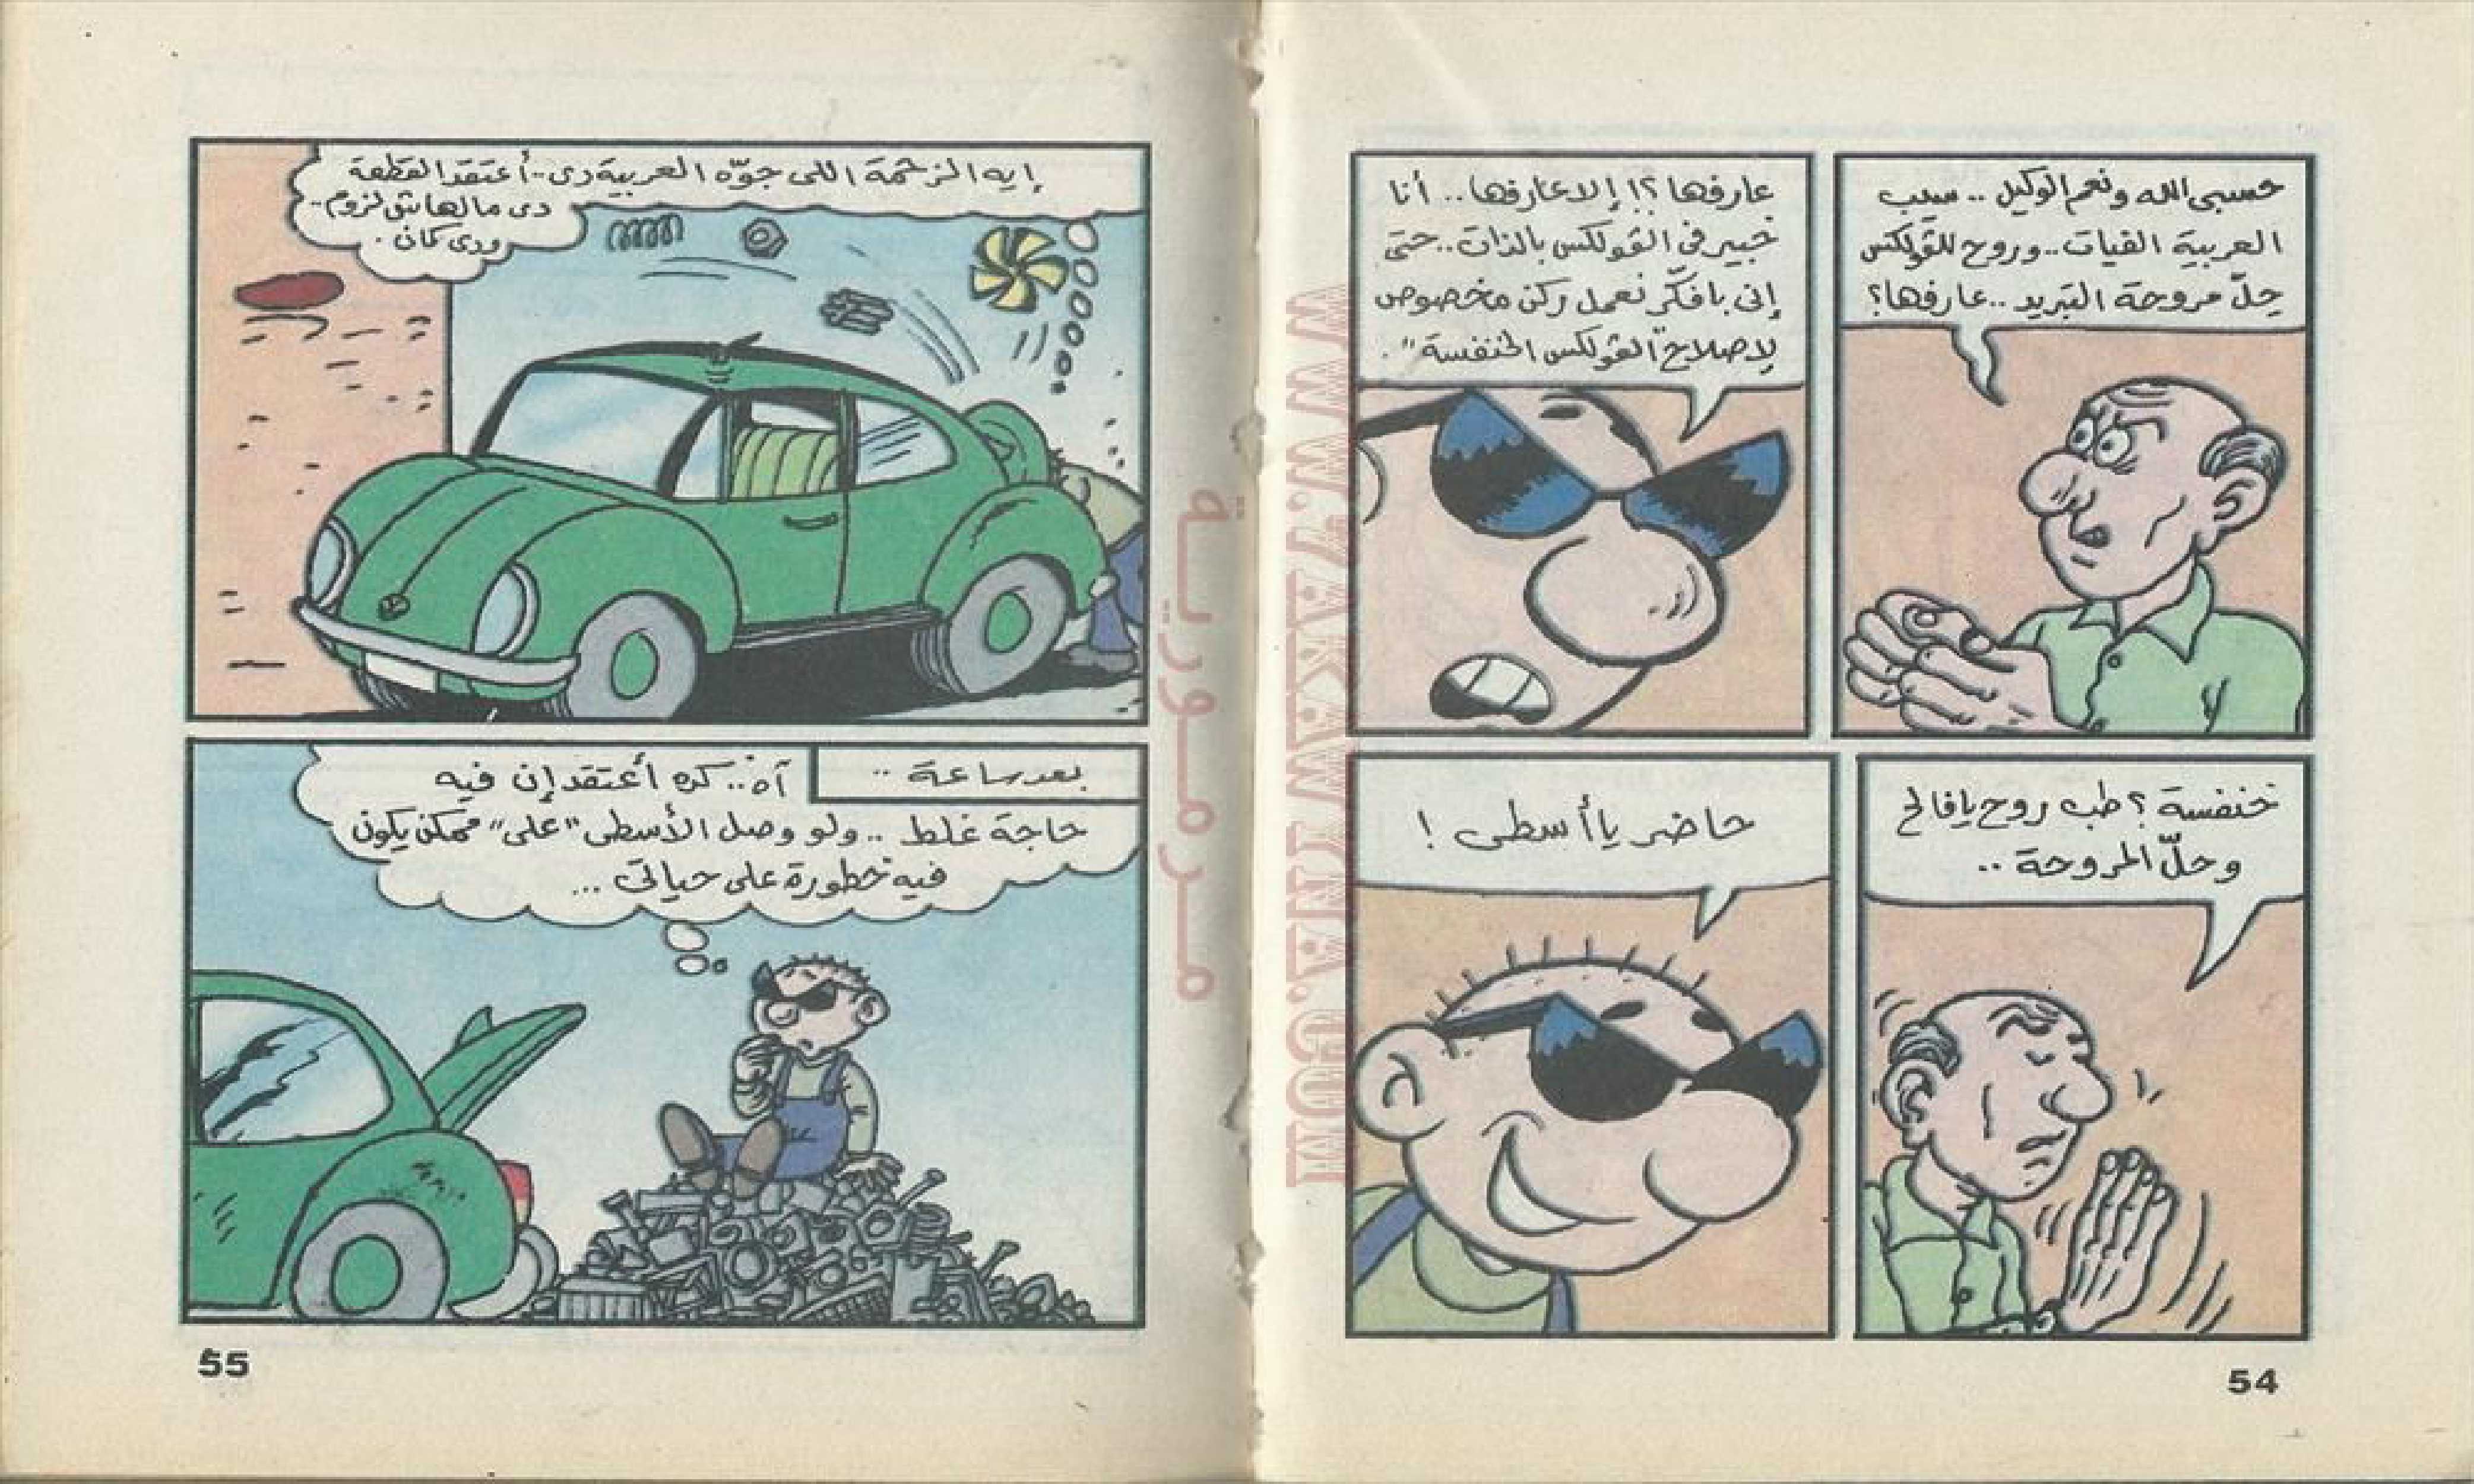 حسبى الله ونعم الوكيل .. سيب
العربية الفيات .. وروح للڤولكس
حلّ مروحة التبريد .. عارفها؟
عارفها؟! إلا عارفها .. أنا
خبير فى الڤولكس بالذات .. حتى
إنى بافكّر نعمل ركن مخصوص
لإصلاح "الڤولكس الخنفسة" .
خنفسة ؟ طب روح يا فالح
وحلّ المروحة ..
حاضر يا أسطى !
54
إيه الزحمة اللى جوّه العربية دى .. أعتقد القطعة
دى مالهاش لزوم ..
ودى كمان .
بعد ساعة ..
آه .. كده أعتقد إن فيه
حاجة غلط .. ولو وصل الأسطى "على" ممكن يكون
فيه خطورة على حياتى ...
55
مرمورية